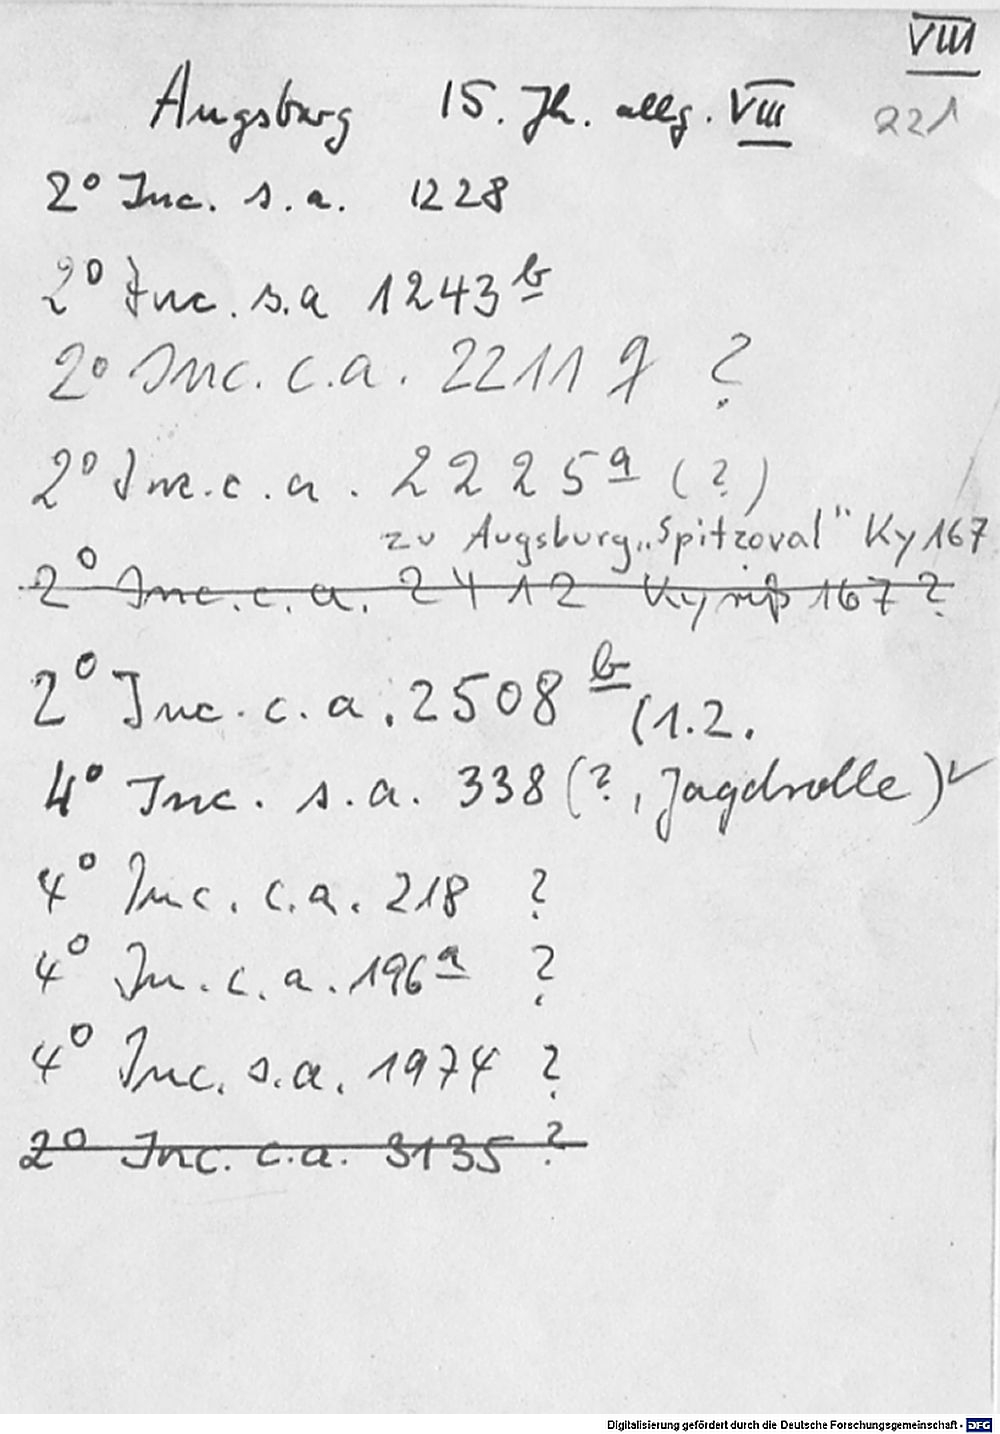 VIII
Augsburg 15. Jh. allg. VIII 221
2° Inc. s. a. 1228
2° Inc. s.a 1243 b
2° Inc. c.a. 2211 ?
2° Inc. c. a. 2225 a (?)
zu Augsburg „Spitzoval" Ky 167
2° Inc. c. a. 2412 Kyriß 167 ?
2° Inc. c. a. 2508 b (1.2.
4° Inc. s. a. 338 (?, Jagdrolle)
4° Inc. c.a. 218 ?
4° In. c. a. 196 a ?
4° Inc. s.a. 1974 ?
2° Inc. c.a. 3135 ?
Digitalisierung gefördert durch die Deutsche Forschungsgemeinschaft - DFG